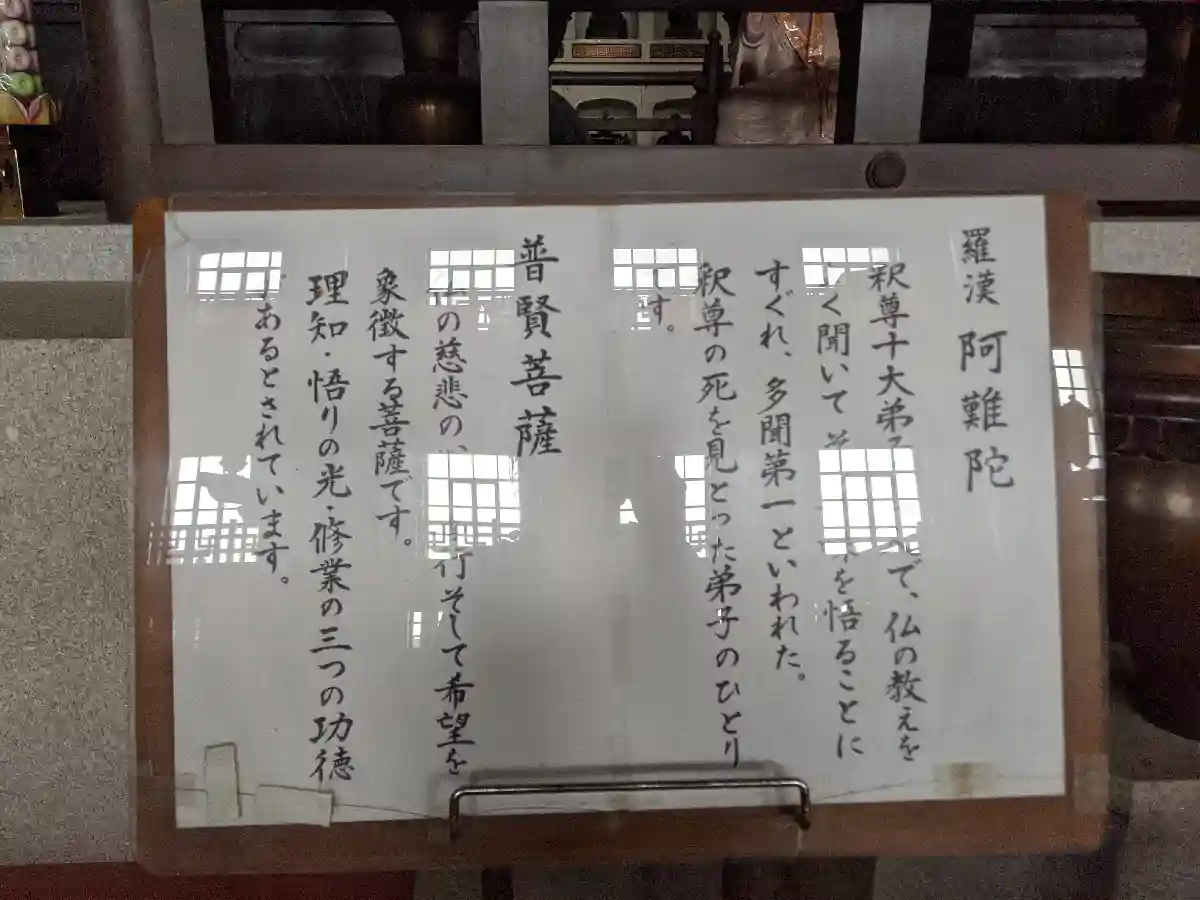 羅漢 阿難陀
釈尊十大弟 で、仏の教えを
く聞いて を悟ることに
すぐれ、多聞第一といわれた。
釈尊の死を見とった弟子のひとり
です。
普賢菩薩
の慈悲の 行そして希望を
象徴する菩薩です。
理知・悟りの光・修業の三つの功徳
であるとされています。